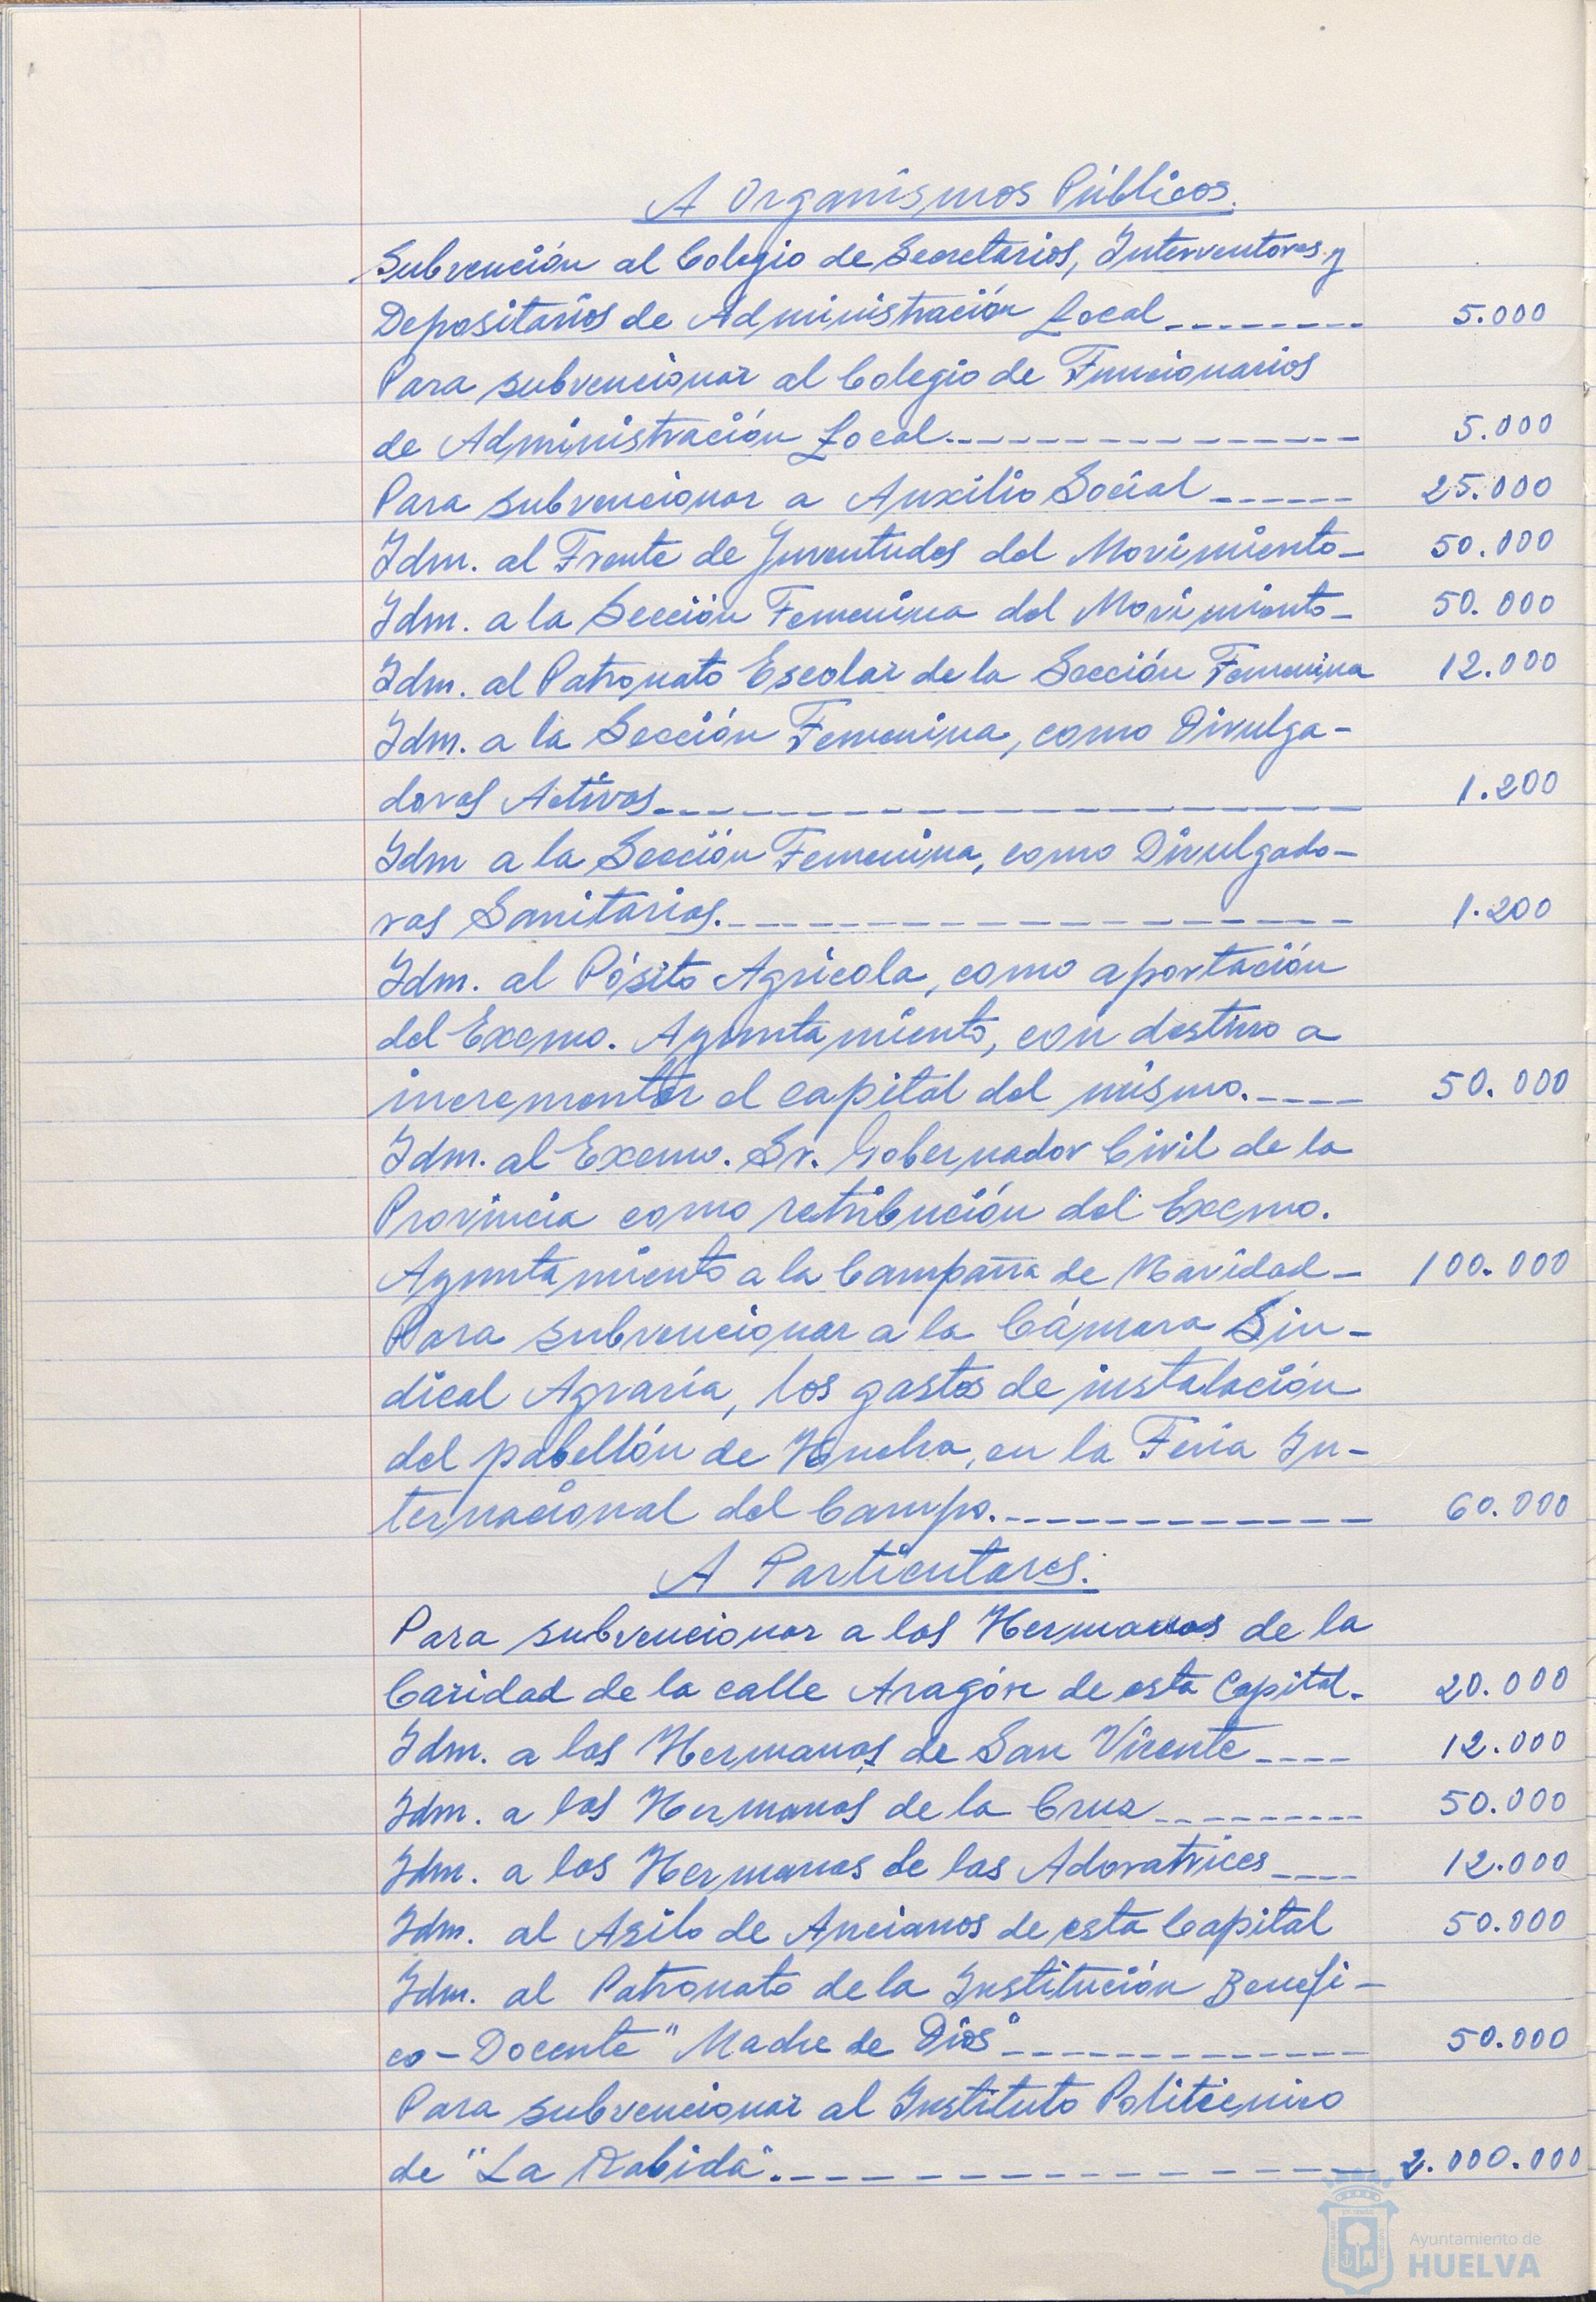 A Organismos Públicos.
Subvención al Colegio de Secretarios, Interventores y
Depositarios de Administración Local 5.000
Para subvencionar al Colegio de Funcionarios
de Administración Local 5.000
Para subvencionar a Auxilio Social 25.000
Idm. al Frente de Juventudes del Movimiento 50.000
Idm. a la Sección Femenina del Movimiento 50.000
Idm. al Patronato Escolar de la Sección Femenina 12.000
Idm. a la Sección Femenina, como Divulga-
doras Activas 1.200
Idm a la Sección Femenina, como Divulgado-
ras Sanitarias. 1.200
Idm. al Pósito Agricola, como aportación
del Excmo. Ayuntamiento, con destino a
incrementar el capital del mismo. 50.000
Idm. al Excmo. Sr. Gobernador Civil de la
Provincia como retribución del Excmo.
Ayuntamiento a la Campaña de Navidad 100.000
Para subvencionar a la Cámara Sin-
dical Agraria, los gastos de instalación
del pabellón de Huelva, en la Feria In-
ternacional del Campo. 60.000
A Particulares.
Para subvencionar a las Hermanas de la
Caridad de la calle Aragón de esta Capital. 20.000
Idm. a las Hermanas de San Vicente 12.000
Idm. a las Hermanas de la Cruz 50.000
Idm. a las Hermanas de las Adoratrices 12.000
Idm. al Asilo de Ancianos de esta Capital 50.000
Idm. al Patronato de la Institución Benefi-
co-Docente "Madre de Dios" 50.000
Para subvencionar al Instituto Politecnico
de "La Rabida". 2.000.000
Ayuntamiento de
HUELVA